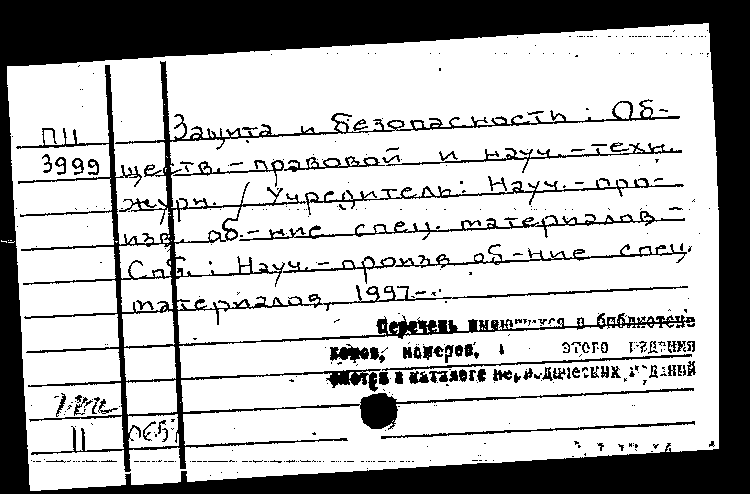 ПII Защита и безопасность : Об-
3999 ществ.-правовой и науч.-техн.
журн. / Учредитель: Науч.-про-
изв. об-ние спец. материалов.-
Спб. : Науч.-произв об-ние спец.
материалов, 1997-.
Перечень имеющихся в библиотеке
томов, номеров, этого издания
смотри в каталоге периодических изданий
II